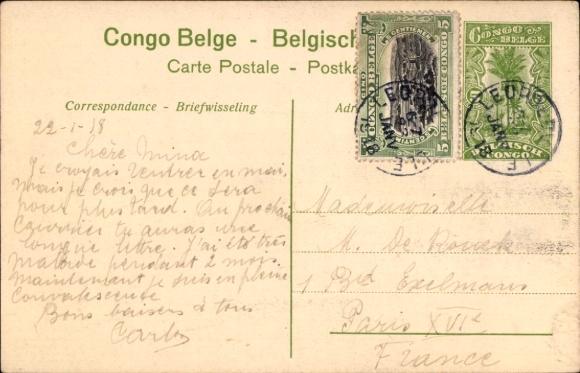 Congo Belge - Belgisch
Carte Postale - Postka
Correspondance - Briefwisseling
Adr
5 CENTIEMES 5
CONGO BELGE
BELGISCH CONGO
CONGO BELGE
BELGISCH CONGO
LEO
JANV
22-1-18
Chère Mina
Je croyais rentrer en mai
mais je crois que ce sera
pour plus tard. Au prochain
courrier tu auras une
longue lettre. J'ai été très
malade pendant 2 mois.
Maintenant je suis en pleine
convalescence
Bons baisers à tous
Mademoiselle
M. De
1 Bd Exelmans
Paris XVIe
France